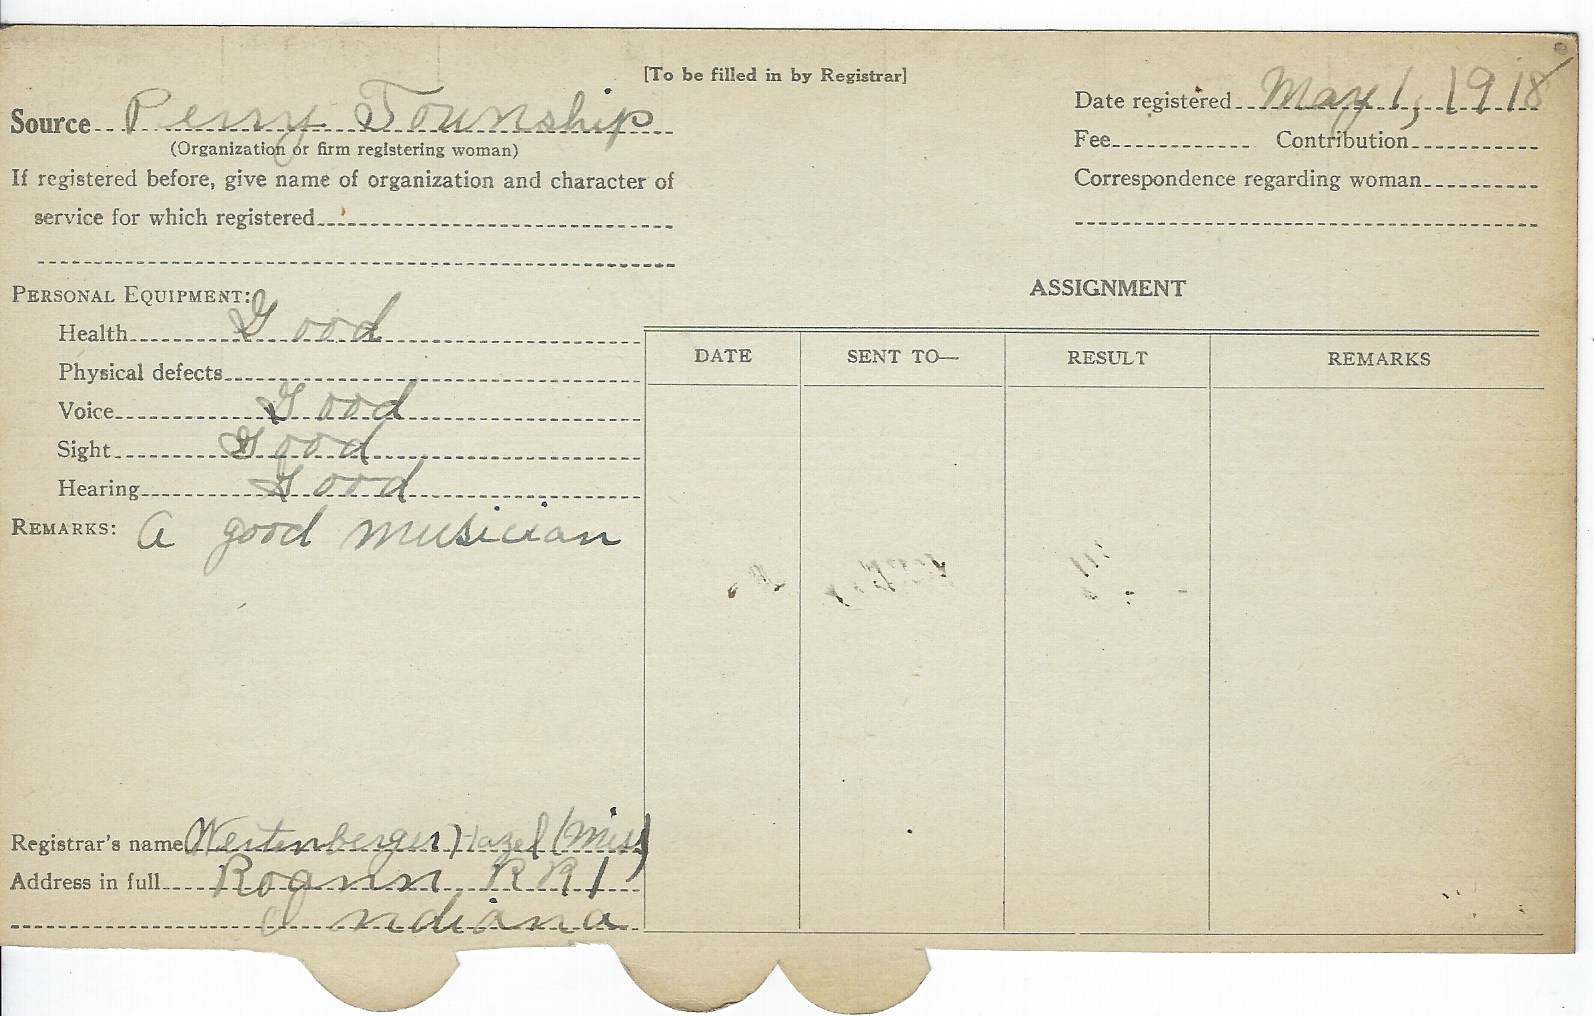 [To be filled in by Registrar]
Source Perry Township
(Organization or firm registering woman)
If registered before, give name of organization and character of
service for which registered
Date registered May 1, 1918
Fee Contribution
Correspondence regarding woman
PERSONAL EQUIPMENT:
Health Good
Physical defects
Voice Good
Sight Good
Hearing Good
REMARKS: A good musician
Registrar's name Westenberger Hazel (Miss)
Address in full Roann RR1
Indiana
ASSIGNMENT
DATE SENT TO— RESULT REMARKS